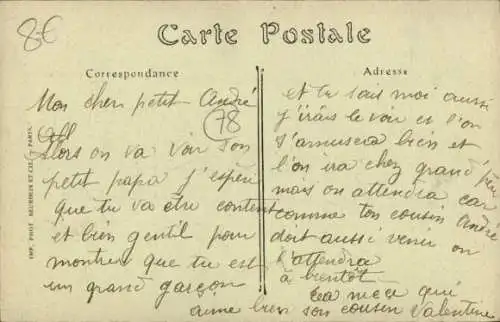 8€
Carte Postale
Correspondance
Adresse
Mon cher petit André
78
Alors on va voir son
petit papa j'espère
que tu va être content
et bien gentil pour
montrer que tu est
un grand garçon
et tu sais moi aussi
j'irais le voir et l'on
s'amusera bien et
l'on ira chez grand père
mais on attendra car
comme ton cousin André
doit aussi venir on
l'attendra
à bientôt
qui
aime bien son cousin Valentine
IMP. PHOT. NEURDEIN ET CIE. PARIS